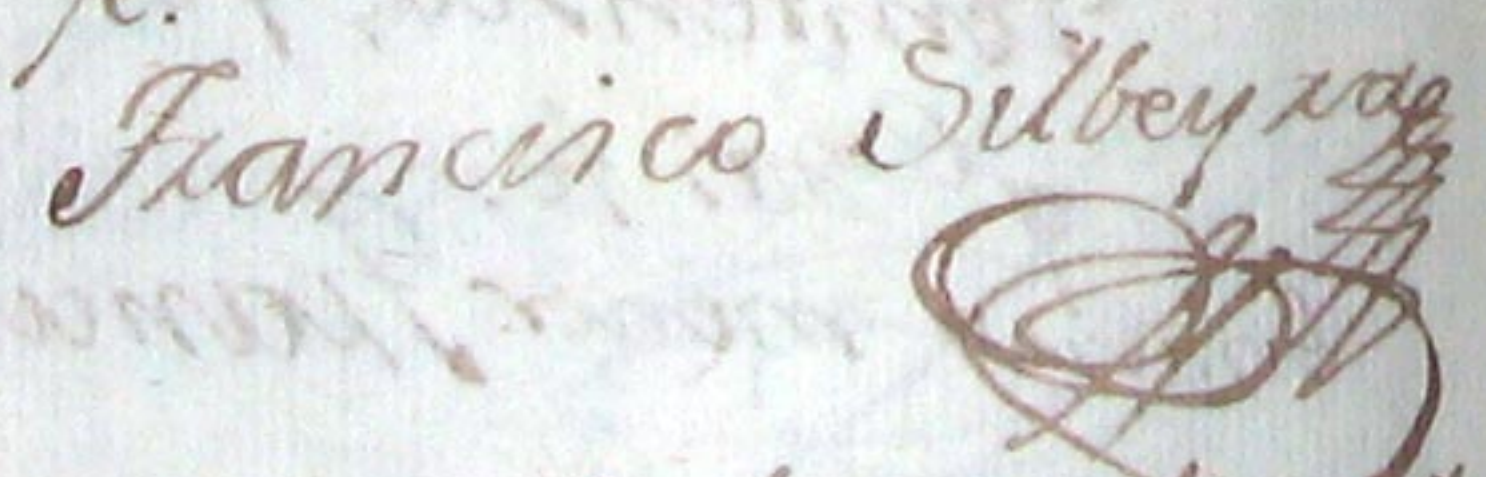 Francisco Silbeyra